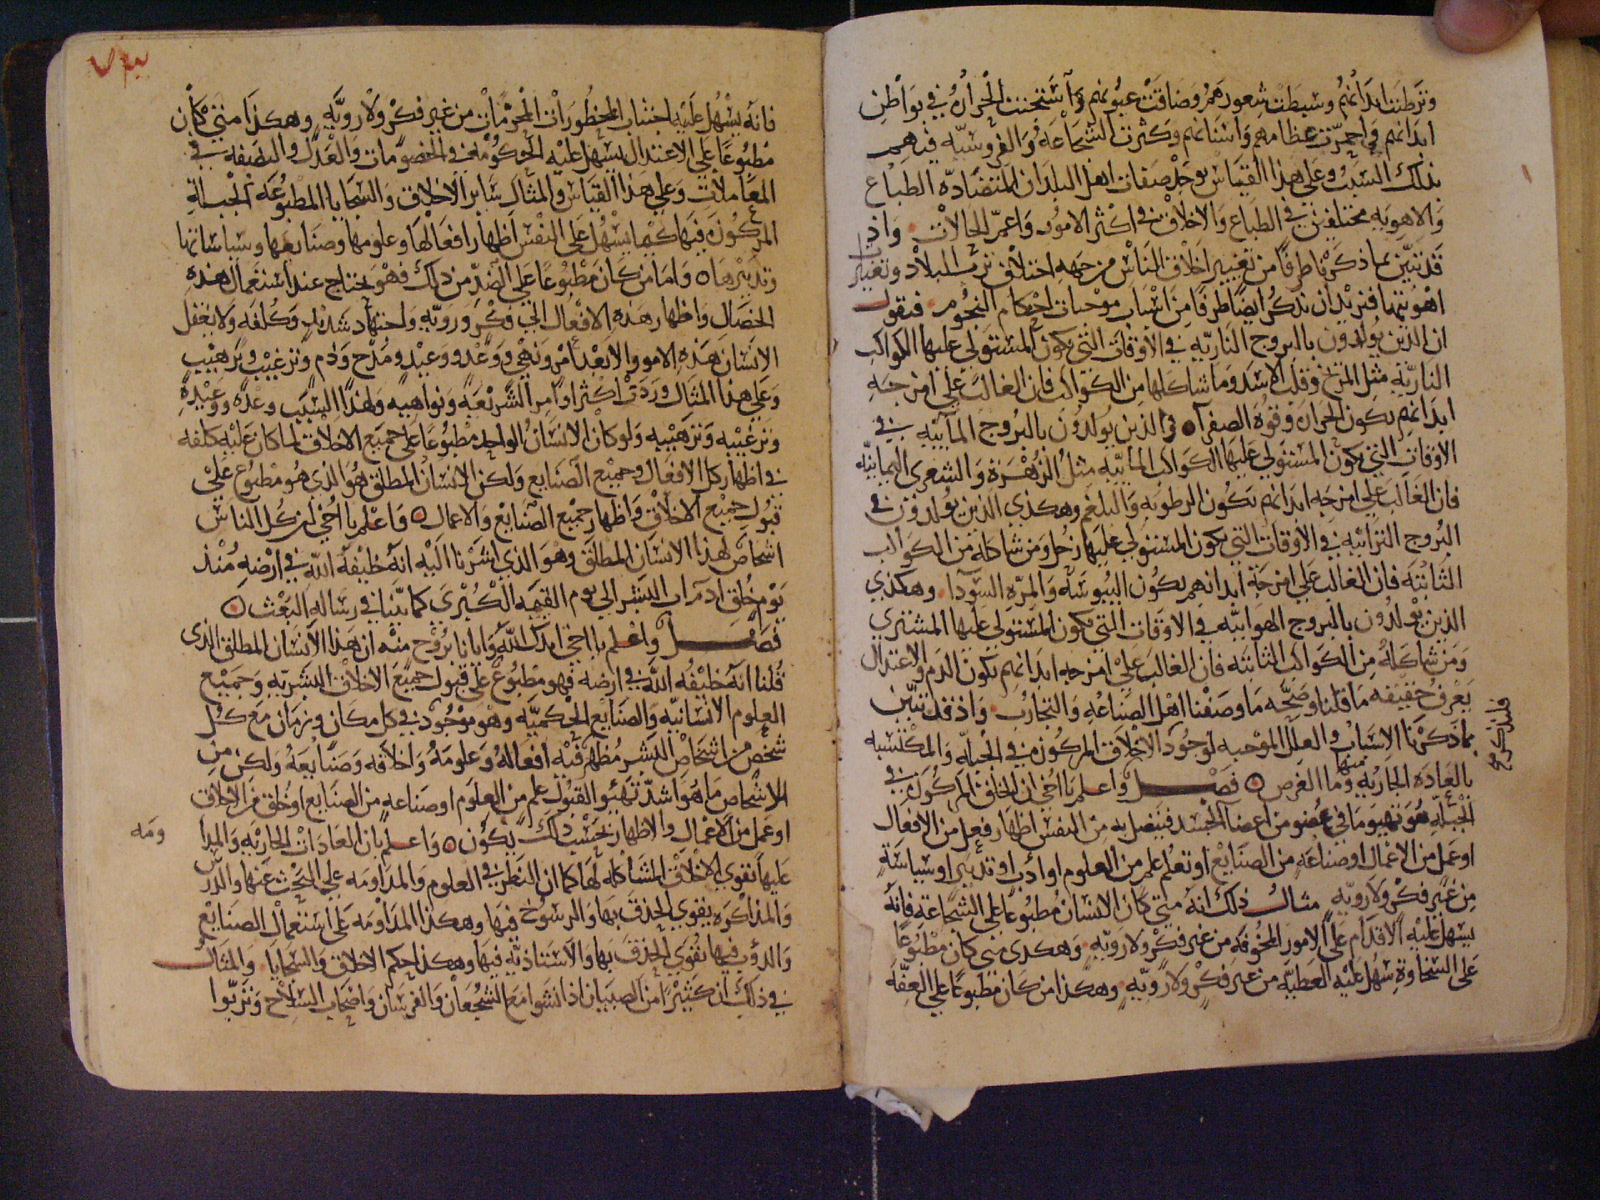 وترطبت ابدانهم وسبطت شعورهم وضاقت عيونهم وآستجنت الحرارة في بواطن
ابدانهم واحمرت عظامهم واسنانهم وكثرت الشجاعة والفروسية فيهم
بذلك السبب وعلى هذا القياس توجد صفات اهل البلدان المتضادة الطباع
والاهوية مختلفين في الطباع والاخلاق في اكثر الامور واعم الحالات واذ
قد تبين بما ذكرنا طرفا من تغيير اخلاق الناس من جهة اختلاف ترب البلاد وتغيرات
اهويتها فنريد ان نذكر ايضا طرفا من اسباب موجبات احكام النجوم فنقول
ان الذين يولدون بالبروج النارية في الاوقات التي يكون المستولي عليها الكواكب
النارية مثل المريخ وقلب الاسد وما شاكلها من الكواكب فان الغالب على امزجة
ابدانهم يكون الحرارة وقوة الصفرآ والذين يولدون بالبروج المآئية في
الاوقات التي يكون المستولي عليها الكواكب المائية مثل الزهرة والشعرى اليمانية
فان الغالب على امزجة ابدانهم تكون الرطوبة والبلغم وهكذي الذين يولدون في
البروج الترابية في الاوقات التي يكون المستولي عليها زحل ومن شاكله من الكواكب
الثابتة فان الغالب على امزجة ابدانهم يكون اليبوسة والمرة السودا وهكذي
الذين يولدون بالبروج الهوائية في الاوقات التي يكون المستولي عليها المشتري
ومن شاكله من الكواكب الثابتة فان الغالب على امزجة ابدانهم يكون الدم والاعتدال
يعرف حقيقة ما قلنا وصحة ما وصفنا اهل الصناعة والتجارب واذ قد تبين
بما ذكرنا الاسباب والعلل الموجبة لوجود الاخلاق المركوزة في الجبلة والمكتسبة
بالعادة الجارية وما الغرض منها فصل واعلم يا اخي ان الخلق المركوز في
الجبلة هو تهيوما في عضو من اعضا الجسد فيتصل به من النفس اظهار فعل من الافعال
او عمل من الاعمال او صناعة من الصنايع او تعلم علم من العلوم او ادب او تدبير او سياسة
من غير فكر ولا روية مثال ذلك انه متى كان الانسان مطبوعا على الشجاعة فانه
يسهل عليه الاقدام على الامور المخوفة من غير فكر ولا روية وهكذى متى كان مطبوعا
على السخاوة سهل عليه العطية من غير فكر ولا روية وهكذا من كان مطبوعا على العفة
فانه يسهل عليه اجتناب المحظورات المحرمات من غير فكر ولا روية وهكذا متى كان
مطبوعا على الاعتدال يسهل عليه الحكومة في الخصومات والعدل والنصفة في
المعاملات وعلى هذا القياس والمثال ساير الاخلاق والسجايا المطبوعة الجبلة
المركوزة فيها كيما يسهل على النفس اظهار افعالها وعلومها وصنايعها وسياساتها
وتدبيرها واما من كان مطبوعا على الضد من ذلك فهو يحتاج عند استعمال هذه
الخصال واظهار هذه الافعال الى فكر وروية واجتهاد شديد وكلفة ولا يفعل
الانسان هذه الامور الا بعد امر ونهي ووعد ووعيد ومدح وذم وترغيب وترهيب
وعلى هذا المثال وردت اكثر اوامر الشريعة ونواهيه ولهذا السبب وعده ووعيده
وترغيبه وترهيبه ولو كان الانسان الواحد مطبوعا على جميع الاخلاق لما كان عليه كلفة
في اظهار كل الافعال وجميع الصنايع ولكن الانسان المطلق هو الذي هو مطبوع على
قبول جميع الاخلاق واظهار جميع الصنايع والاعمال واعلم يا اخي ان كل الناس
اشخاص لهذا الانسان المطلق وهو الذي اشرنا اليه انه خليفة الله في ارضه منذ
يوم خلق ادم اب البشر الى يوم القيمة الكبرى كما بينا في رسالة البعث
فصل واعلم يا اخي ايدك الله وايانا بروح منه ان هذا الانسان المطلق الذى
قلنا انه خليفة الله في ارضه فهو مطبوع على قبول جميع الاخلاق البشرية وجميع
العلوم الانسانية والصنايع الحكمية وهو موجود في كل مكان وزمان مع كل
شخص من اشخاص البشر يظهر فيه افعاله وعلومه واخلاقه وصنايعه ولكن من
الاشخاص ما هو اشد تهيئوا لقبول علم من العلوم او صناعة من الصنايع او خلق من الاخلاق
او عمل من الاعمال والاظهار بحسب ذلك يكون واعلم بان العادات الجارية والمدا
ومه
عليها تقوى الاخلاق المشاكلة لها كما ان النظر في العلوم والمداومة على البحث عنها والدرس
والمذاكرة يقوى الحذق بها والرسوخ فيها وهكذا المداومة على استعمال الصنايع
والدؤب فيها يقوي الحذق بها والاستاذية فيها وهكذا حكم الاخلاق والسجايا والمثال
في ذلك ان كثيرا من الصبيان اذا نشوا مع الشجعان والفرسان واصحاب السلاح وتربوا